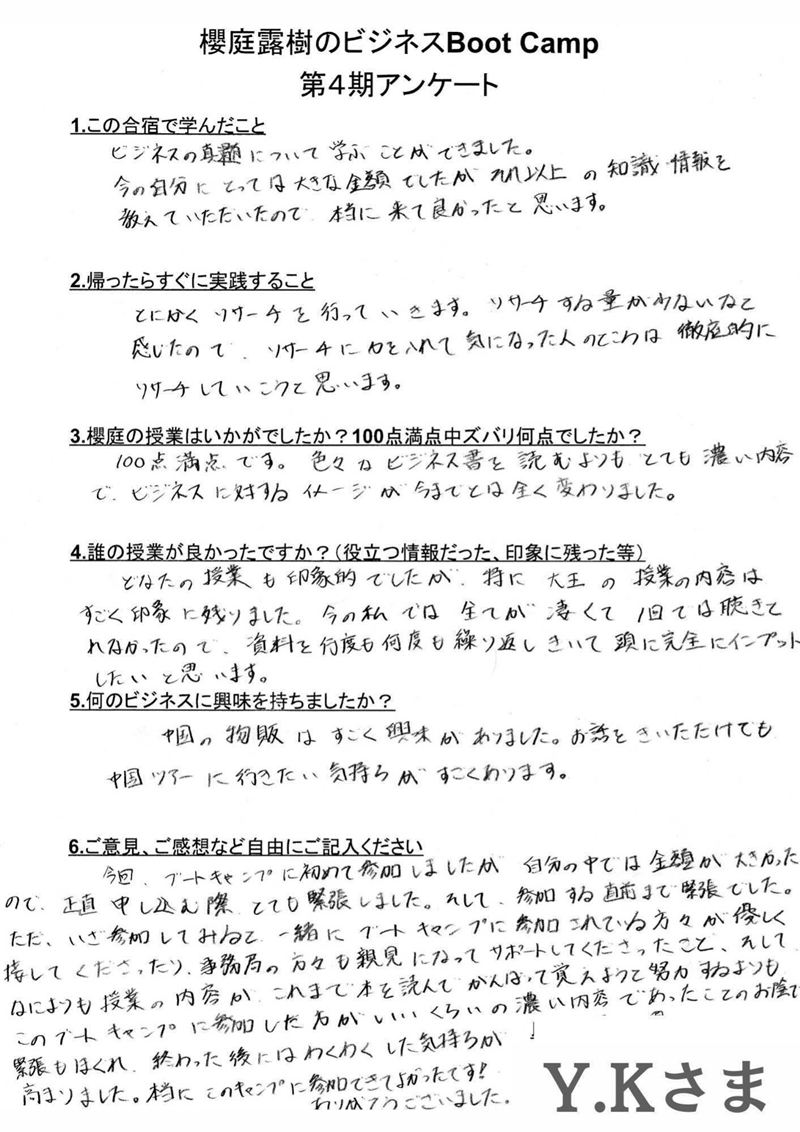 櫻庭露樹のビジネスBoot Camp
第4期アンケート
1.この合宿で学んだこと
ビジネスの真髄について学ぶことができました。
今の自分にとっては大きな金額でしたが それ以上の知識・情報を
教えていただいたので、本当に来て良かったと思います。
2.帰ったらすぐに実践すること
とにかくリサーチを行っていきます。リサーチする量が少ないなと
感じたので、リサーチに力を入れて気になった人のところは徹底的に
リサーチしていこうと思います。
3.櫻庭の授業はいかがでしたか？100点満点中ズバリ何点でしたか？
100点満点です。色々なビジネス書を読むよりもとても濃い内容
で、ビジネスに対するイメージが今までとは全く変わりました。
4.誰の授業が良かったですか？（役立つ情報だった、印象に残った等）
どなたの授業も印象的でしたが、特に大王の授業の内容は
すごく印象に残りました。今の私では全てが凄くて1回では聴きと
れなかったので、資料を何度も何度も繰り返しきいて頭に完全にインプット
したいと思います。
5.何のビジネスに興味を持ちましたか？
中国の物販はすごく興味がありました。お話をきいただけでも
中国ツアーに行きたい気持ちがすごくあります。
6.ご意見、ご感想など自由にご記入ください
今回、ブートキャンプに初めて参加しましたが 自分の中では金額が大きかった
ので、正直申し込む際、とても緊張しました。そして、参加する直前まで緊張でした。
ただ、いざ参加してみると、一緒にブートキャンプに参加されている方々が優しく
接してくださったり、事務局の方々も親見になってサポートしてくださったこと、そして
なによりも授業の内容が、これまで本を読んでがんばって覚えようと努力するよりも
このブートキャンプに参加した方がいいくらいの濃い内容であったことのお陰で
緊張もほぐれ、終わった後にはわくわくした気持ちが
高まりました。本当にこのキャンプに参加できてよかったです!
ありがとうございました。
Y.Kさま